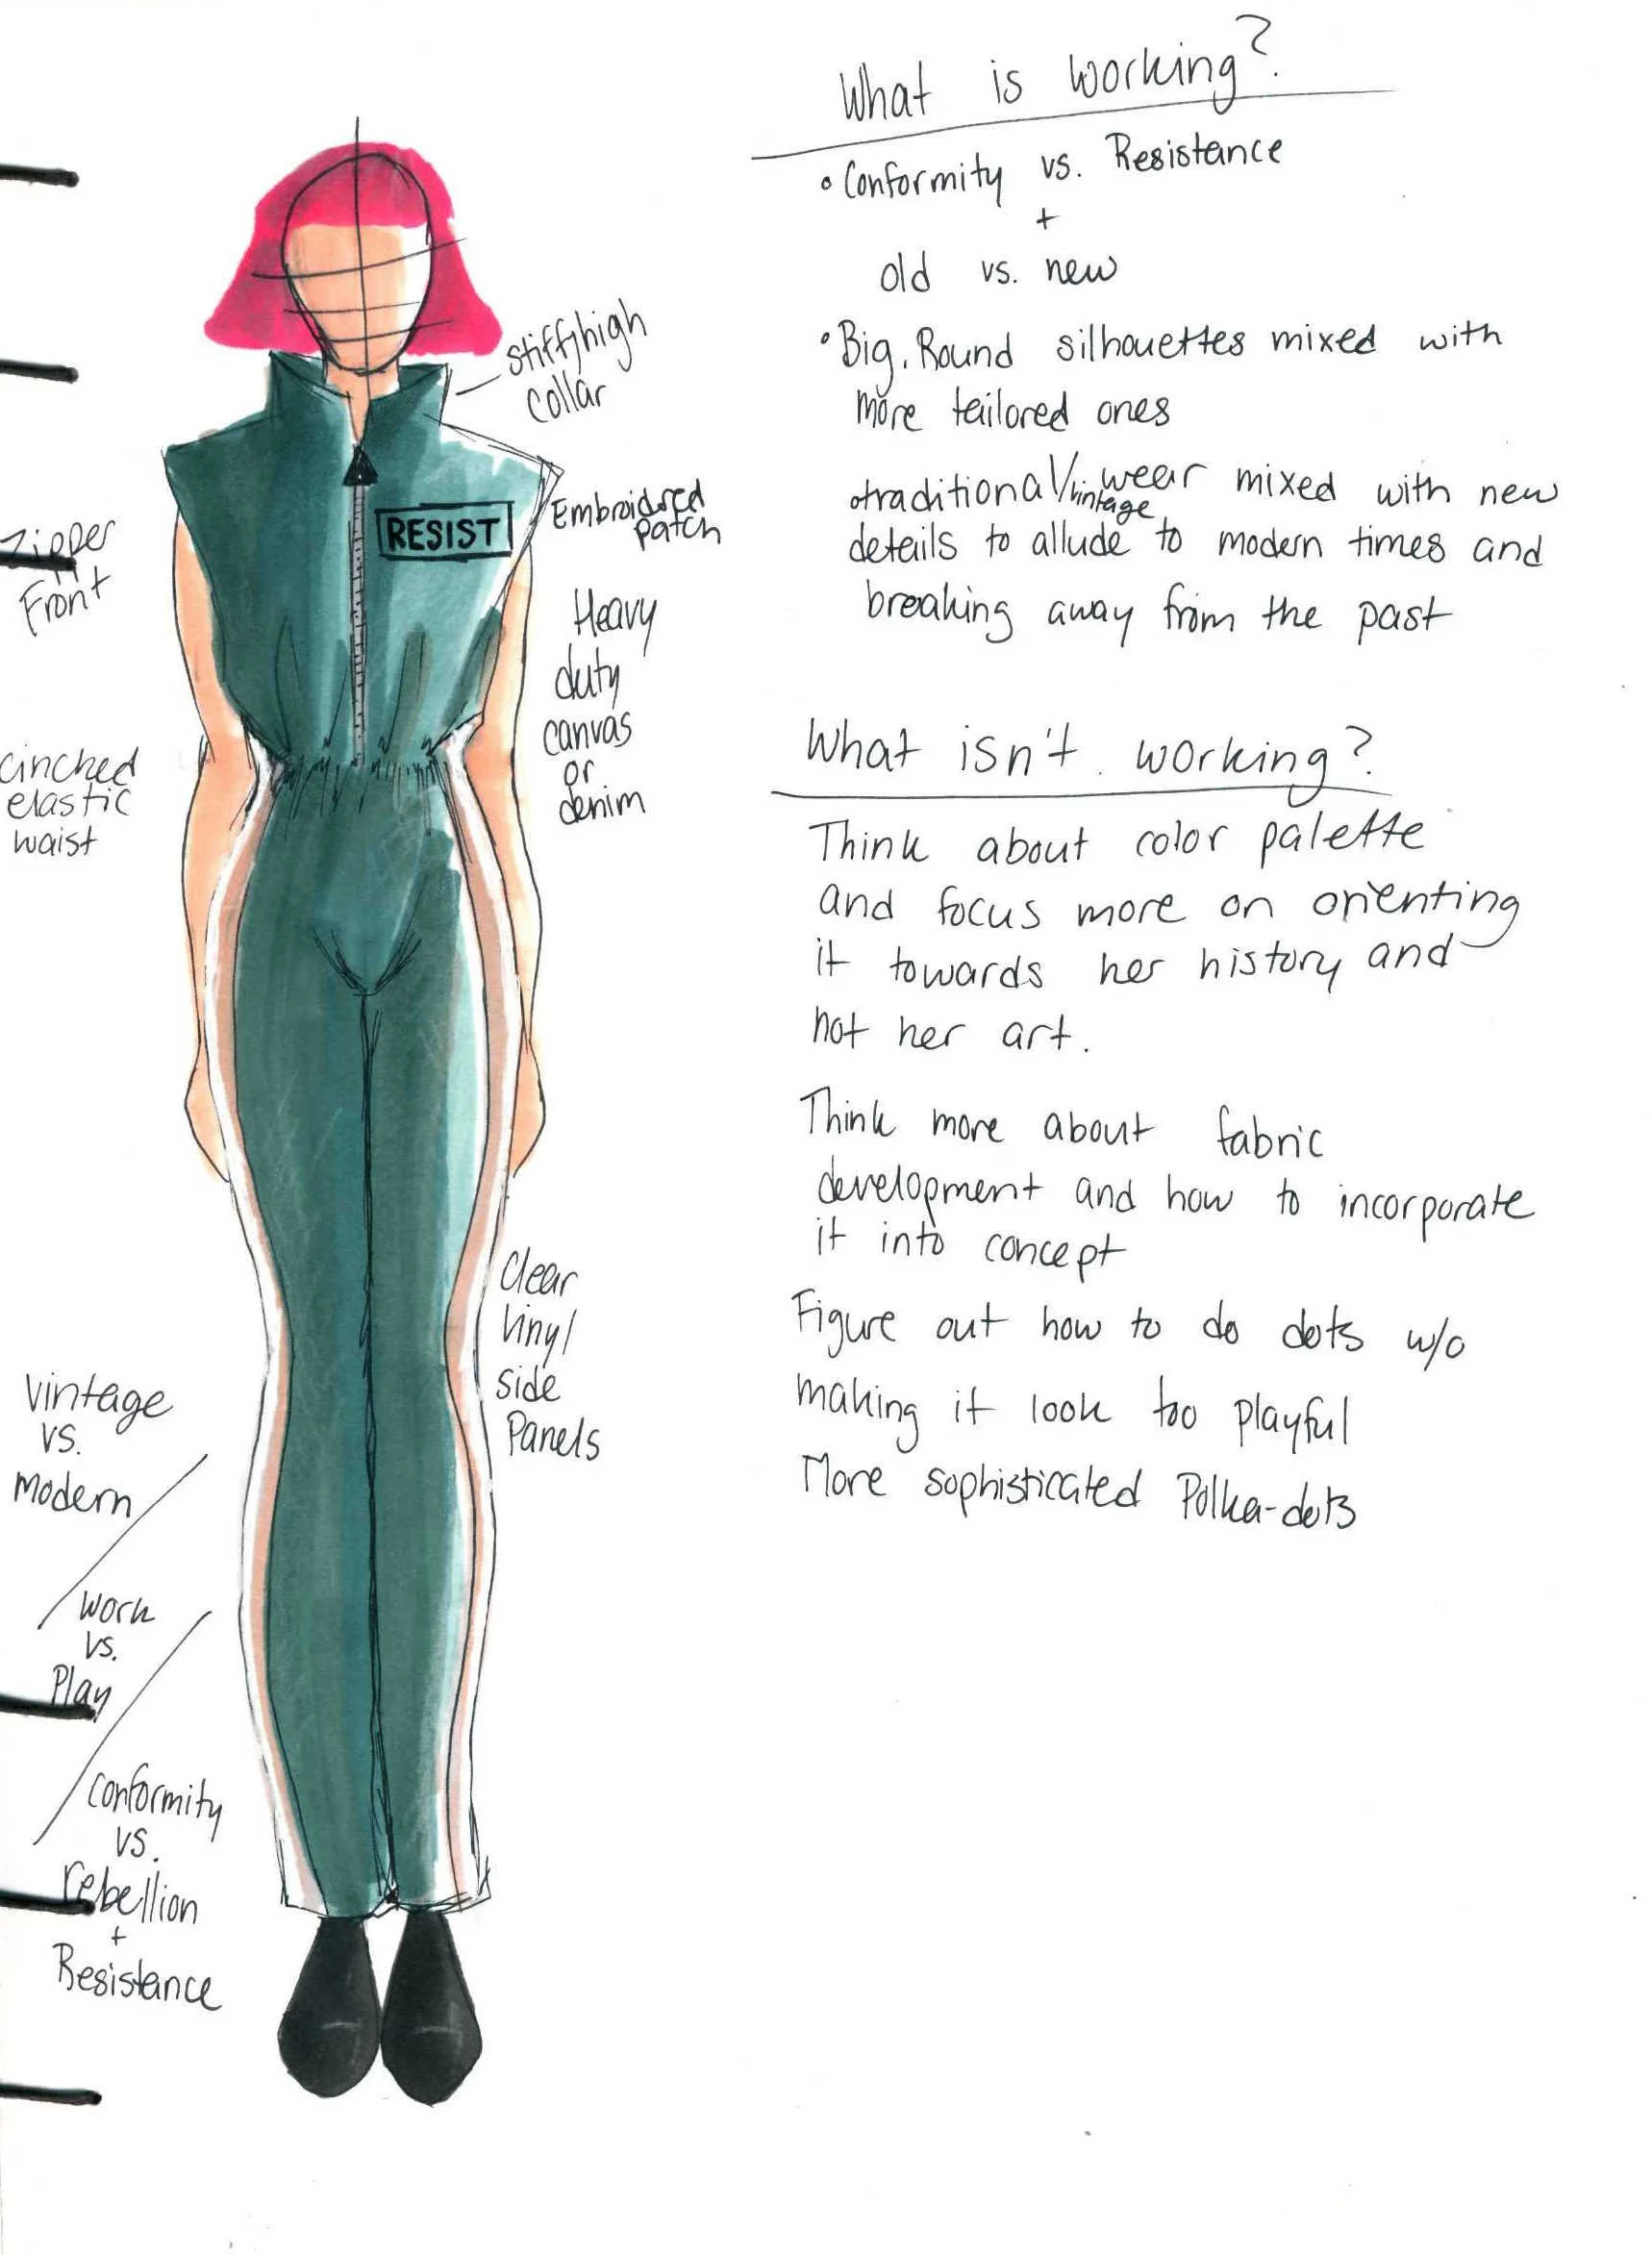 What is working?
• Conformity vs. Resistance
+
old vs. new
• Big, Round silhouettes mixed with
more tailored ones
• traditional/vintage wear mixed with new
details to allude to modern times and
breaking away from the past
What isn't working?
Think about color palette
and focus more on orienting
it towards her history and
not her art.
Think more about fabric
development and how to incorporate
it into concept
Figure out how to do dots w/o
making it look too playful
More sophisticated Polka-dots
stiff/high
collar
RESIST
Embroidered
patch
Zipper
Front
Heavy
duty
canvas
or
denim
cinched
elastic
waist
Clear
Vinyl
side
Panels
Vintage
vs.
Modern
Work
vs.
Play
Conformity
vs.
rebellion
+
Resistance